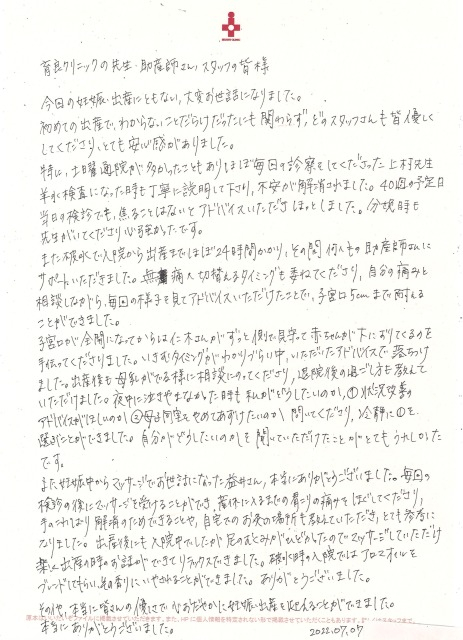 育良クリニックの先生・助産師さん、スタッフの皆様
今回の妊娠・出産にともない、大変お世話になりました。
初めての出産で、わからないことだらけだったにも関わらず、どのスタッフさんも皆優しく
してくださり、とても安心感がありました。
特に、土曜通院が多かったこともありほぼ毎回の診察をしてくださった上村先生
羊水検査になった時も丁寧に説明して下さり、不安が解消されました。40週の予定日
当日の検診でも、焦ることはないとアドバイスいただきほっとしました。分娩時も
先生がいてくださり心強かったです。
また破水で入院から出産までほぼ24時間かかり、その間何人もの助産師さんに
サポートいただきました。無痛へ切替えるタイミングも委ねてくださり、自分の痛みと
相談しながら、毎回の様子を見てアドバイスいただけたことで、子宮口5cmまで耐える
ことができました。
子宮口が全開になってからは仁木さんがずっと側で見守って赤ちゃんが下に下りてくるのを
手伝ってくださりました。いきむタイミングがわかりづらい中、いただいたアドバイスで落ちつけ
ました。出産後も母乳がでる様に相談にのってくださり、退院後の過ごし方も教えて
いただけました。夜中に泣きやまなかった時も私がどうしたいのか、①状況改善の
アドバイスがほしいのか ②母子同室をやめてあずけたいのか 聞いてくださり、冷静に①を
選ぶことができました。自分がどうしたいのかを聞いていただけたことがとてもうれしかった
です。
また妊娠中からマッサージでお世話になった益井さん、本当にありがとうございました。毎回の
検診の後にマッサージを受けることができ、産休に入るまでの肩こりの痛みをほぐしてくださり、
手のこわばり解消のためにできることや、自宅でのお灸の場所も教えていただき、とても参考に
なりました。出産後にも入院中でしたが足のむくみがひどかったのでマッサージしていただけ
楽に 出産の時のお話ができてリラックスできました。破水時の入院ではアロマオイルを
ブレンドしてもらい、その香りにいやされることができました。ありがとうございました。
その他、本当に皆さんの優しさで心おだやかに妊娠・出産をむかえることができました。
本当にありがとうございました。
2022.07.07